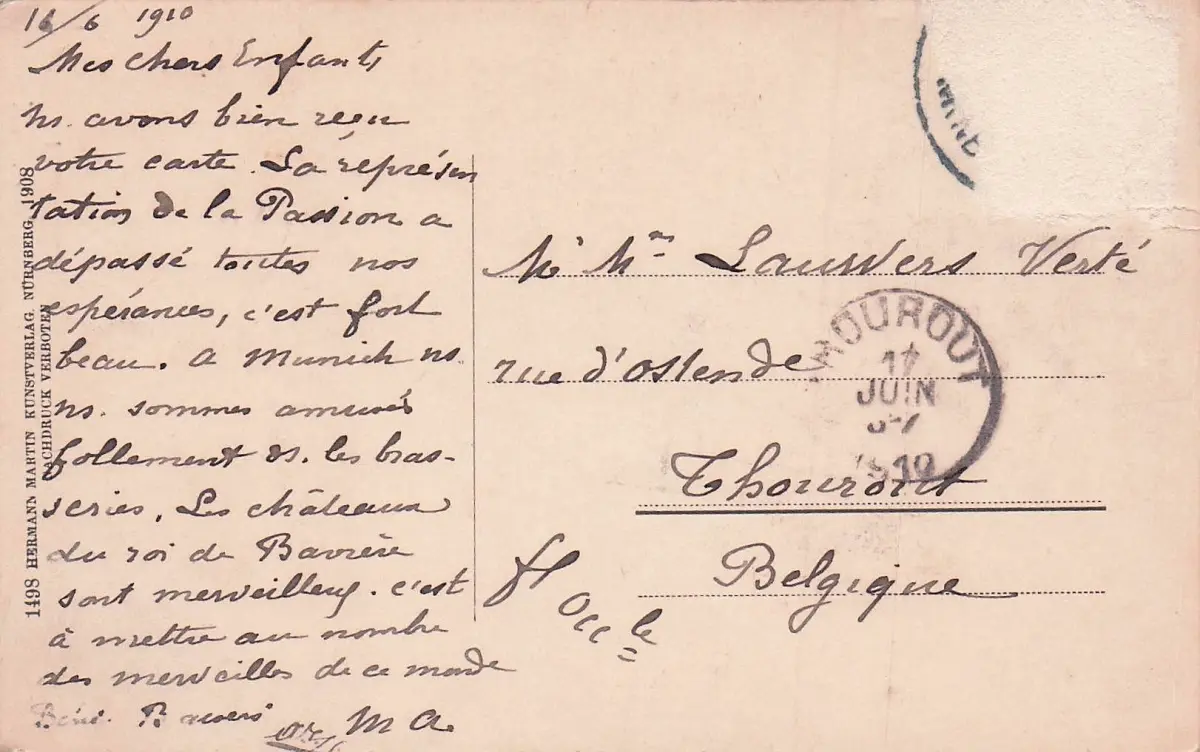 16/6 1910
Mes chers Enfants
ns. avons bien reçu
votre carte. La représen
tation de la Passion a
dépassé toutes nos
espérances, c'est fort
beau. A Munich ns.
ns. sommes amusés
follement ds. les bras-
series. Les châteaux
du roi de Bavière
sont merveilleux. c'est
à mettre au nombre
des merveilles de ce monde
M A.
1498 HERMANN MARTIN KUNSTVERLAG, NÜRNBERG, 1908
NACHDRUCK VERBOTEN
Mr Mme Lauwers Verté
rue d'Ostende
Thourout
Belgique
fl occle
THOUROUT
17
JUIN
1910